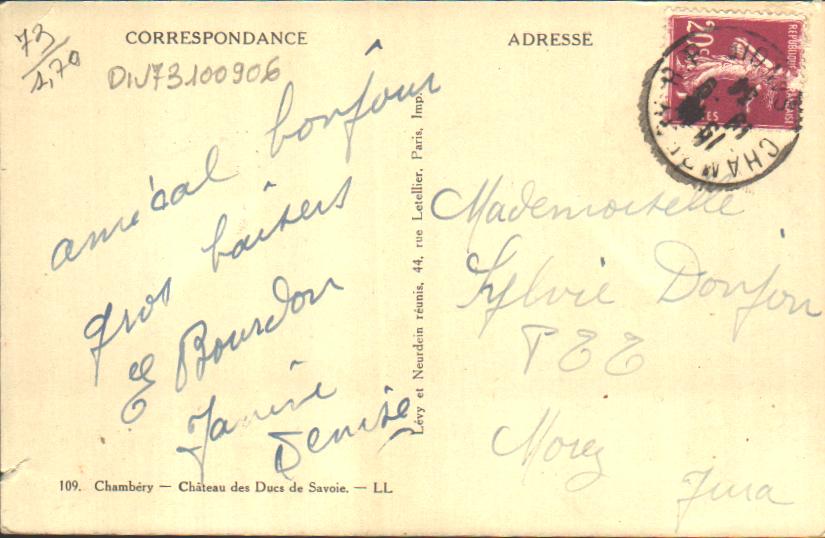 73
1,70
DIV73100906
CORRESPONDANCE
amical bonjour
gros baisers
E Bourdon
Janine
Denise
109. Chambéry — Château des Ducs de Savoie. — LL
Lévy et Neurdein réunis, 44, rue Letellier, Paris, Imp.
ADRESSE
20c
REPUBLIQUE FRANÇAISE
Mademoiselle
Sylvie Donjon
PTT
Morez
Jura